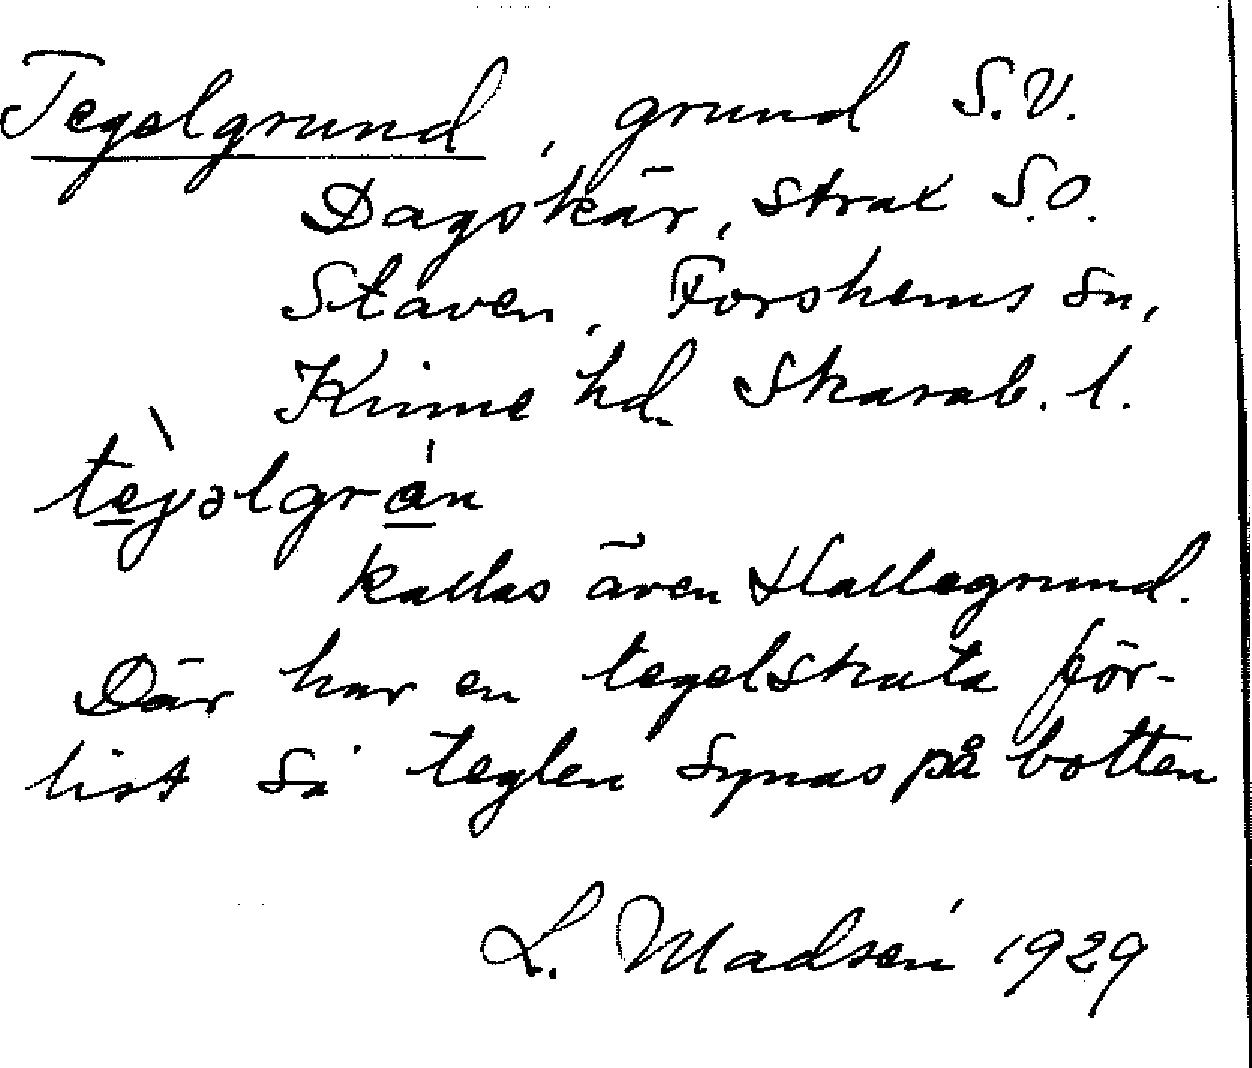 Tegelgrund, grund S.V.
Dagskär, strax S.O.
Staven, Forshems sn,
Kinne hd. Skarab. l.
tèjəlgrán
kallas även Hallegrund.
Där har en tegelskuta för-
list så teglen synas på botten
L. Madsén 1929